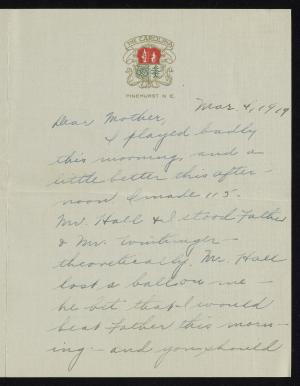 THE CAROLINA
PINEHURST N.C.
Mar 4, 1919
Dear Mother,
I played badly
this morning, and a
little better this after-
noon I made 115.
Mr. Hall & I stood Father
& Mr.
theoretically. Mr. Hall
lost a ball on me –
he bet that I would
beat Father this morn-
ing – and you should